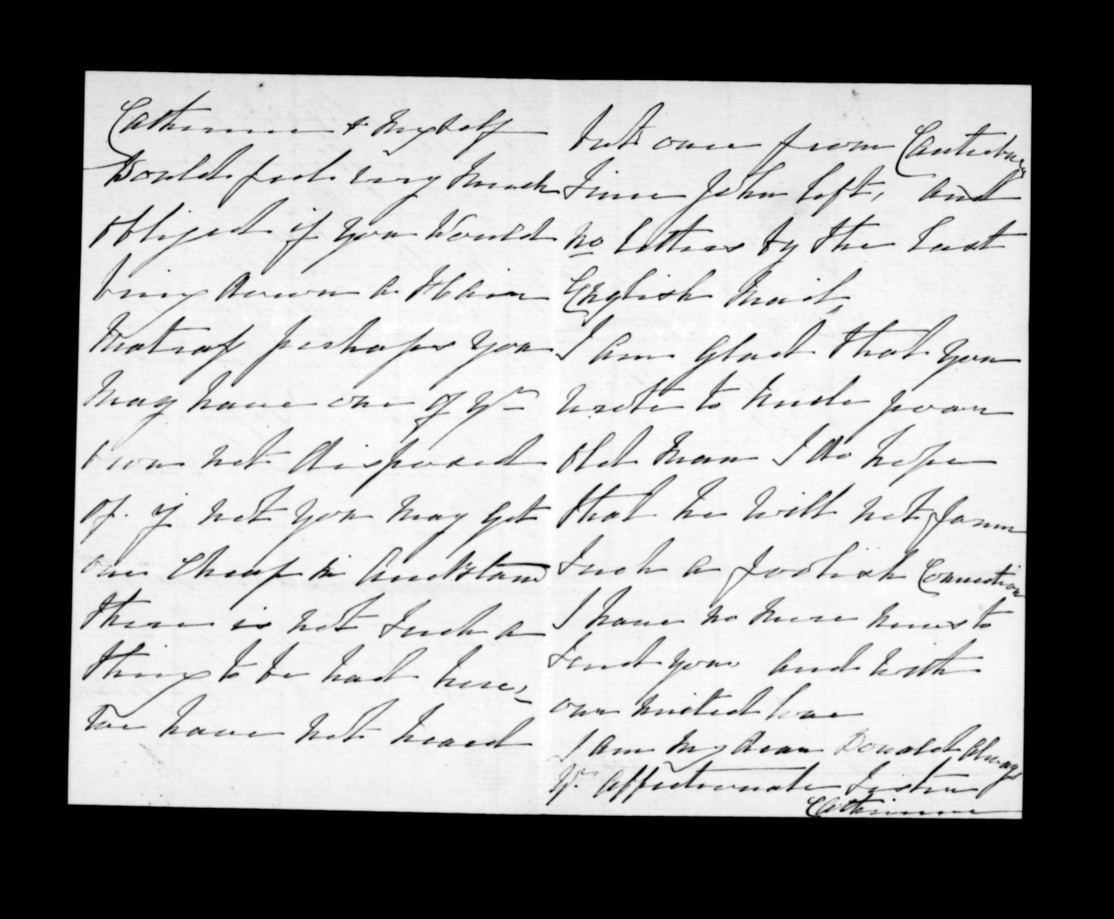 Catherine & myself
Would feel very much
obliged if you would
bring down a Hair
Matrass perhaps you
may have one of yr
own not disposed
of. if not you may get
one cheap in Auckland
there is not such a
thing to be had here,
We have not heard
but once from Canterbury
since John left, and
no letters by the last
English Mail,
I am glad that you
wrote to  poor
old man I do hope
that he will not form
such a foolish Connection
I have no more news to
send you and with
our united love
I am My dear Donald Always
Yr. affectionate Sister
Catherine